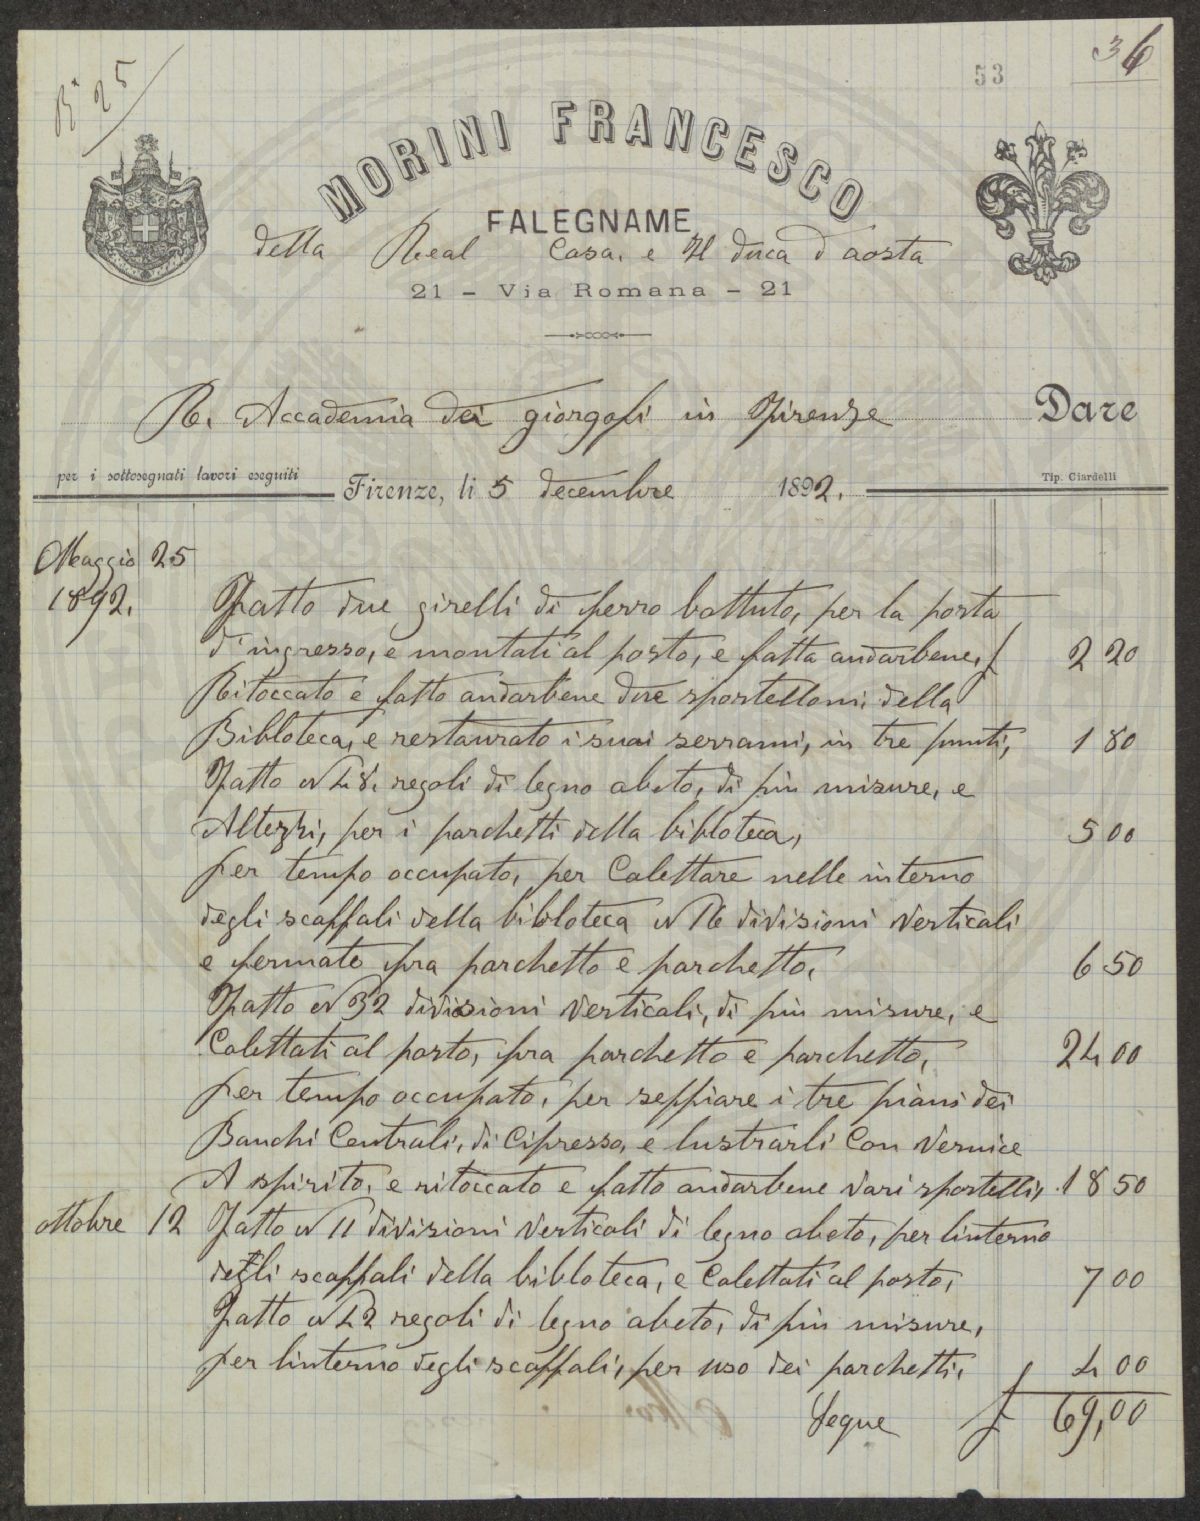 B.ª 25
53
36
MORINI FRANCESCO
FALEGNAME
della Real Casa, e Il duca d'aosta
21 - Via Romana - 21
R. Accademia dei giorgofi in Firenze
Dare
per i sottosegnati lavori eseguiti
Firenze, li 5 decembre 1892.
Tip. Ciardelli
Maggio 25
1892. Fatto due girelli di ferro battuto, per la porta
d'ingresso, e montati al posto, e fatta andarbene, £ 2 20
Ritoccato e fatto andarbene due sportelloni della
Bibloteca, e restaurato i suai serrami, in tre punti, 1 80
Fatto N 48. regoli di legno abeto, di più misure, e
Altezzi, per i parchetti della bibloteca, 5 00
per tempo occupato, per Calettare nelle interno
degli scaffali della bibloteca N 16 divisioni verticali
e fermate fra parchetto e parchetto, 6 50
Fatto N 32 divisioni verticali, di più misure, e
Calettati al posto, fra parchetto e parchetto, 24 00
per tempo occupato, per seppiare i tre piani dei
Banchi Centrali, di Cipresso, e lustrarli Con vernice
A spirito, e ritoccato e fatto andarbene vari sportelli, 18 50
ottobre 12 Fatto N 11 divisioni verticali di legno abeto, per linterno
degli scaffali della bibloteca, e Calettati al posto, 7 00
Fatto N 42 regoli di legno abeto, di più misure,
per linterno degli scaffali, per uso dei parchetti, 4 00
Segue £ 69,00